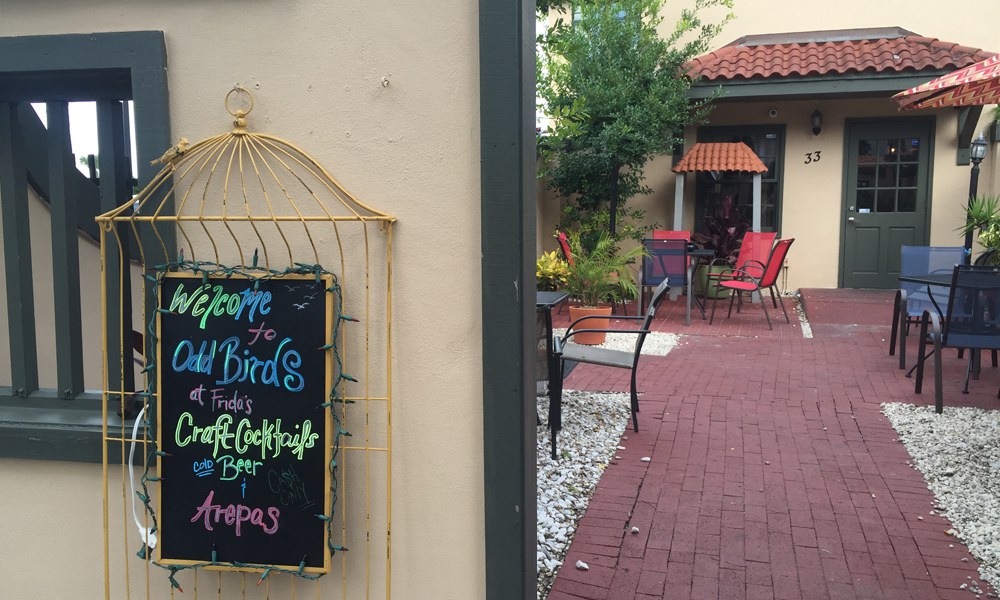 Welcome
to
Odd Birds
at Frida's
Craft Cocktails
cold Beer
&
Arepas
33